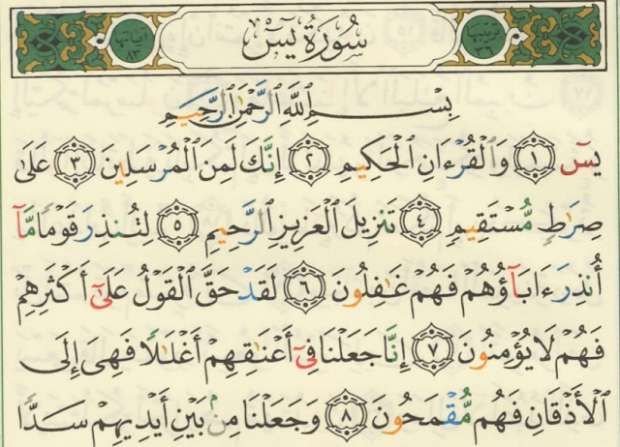 ترتيبها ٣٦ سُورَةُ يسٓ آياتها ٨٣
بِسْمِ ٱللَّهِ ٱلرَّحْمَٰنِ ٱلرَّحِيمِ
يسٓ ١ وَٱلْقُرْءَانِ ٱلْحَكِيمِ ٢ إِنَّكَ لَمِنَ ٱلْمُرْسَلِينَ ٣ عَلَىٰ
صِرَٰطٍ مُّسْتَقِيمٍ ٤ تَنزِيلَ ٱلْعَزِيزِ ٱلرَّحِيمِ ٥ لِتُنذِرَ قَوْمًا مَّآ
أُنذِرَ ءَابَآؤُهُمْ فَهُمْ غَٰفِلُونَ ٦ لَقَدْ حَقَّ ٱلْقَوْلُ عَلَىٰٓ أَكْثَرِهِمْ
فَهُمْ لَا يُؤْمِنُونَ ٧ إِنَّا جَعَلْنَا فِىٓ أَعْنَٰقِهِمْ أَغْلَٰلًا فَهِىَ إِلَى
ٱلْأَذْقَانِ فَهُم مُّقْمَحُونَ ٨ وَجَعَلْنَا مِنۢ بَيْنِ أَيْدِيهِمْ سَدًّا